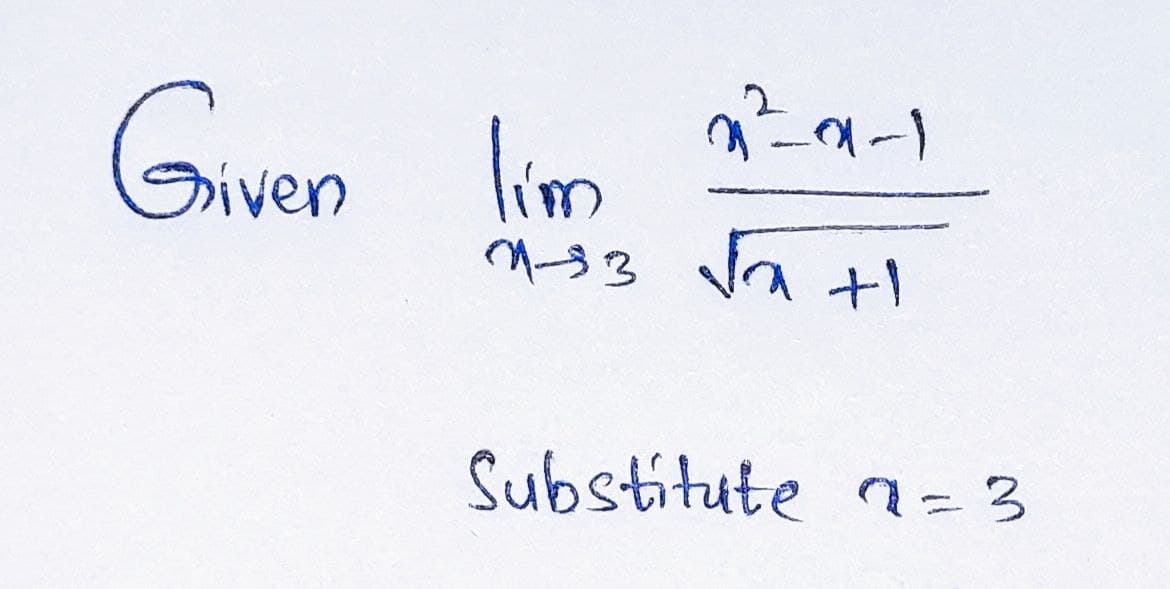 Given lim x→3 x²-x-1 / √x+1
Substitute x=3